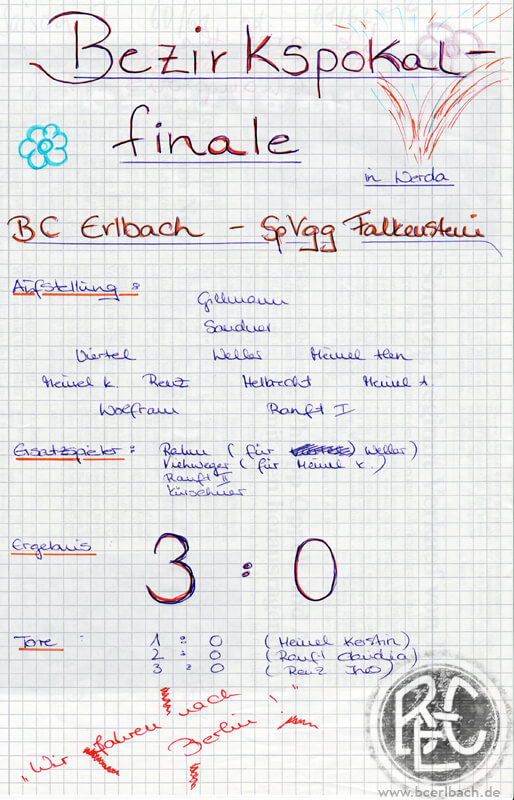 Bezirkspokal-
finale
in Werda
BC Erlbach - SpVgg Falkenstein
Aufstellung:
Gillmann
Sandner
Viertel Weller Meinel Man
Meinel K. Renz Helbrecht Meinel A.
Wolfram Ranft I
Ersatzspieler: Rahm (für Weller)
Viehweger (für Meinel K.)
Ranft II
Kürschner
Ergebnis: 3:0
Tore: 1:0 (Meinel Kerstin)
2:0 (Ranft Claudia)
3:0 (Renz Ines)
"Wir fahren nach
Berlin!"
BCE
www.bcerlbach.de